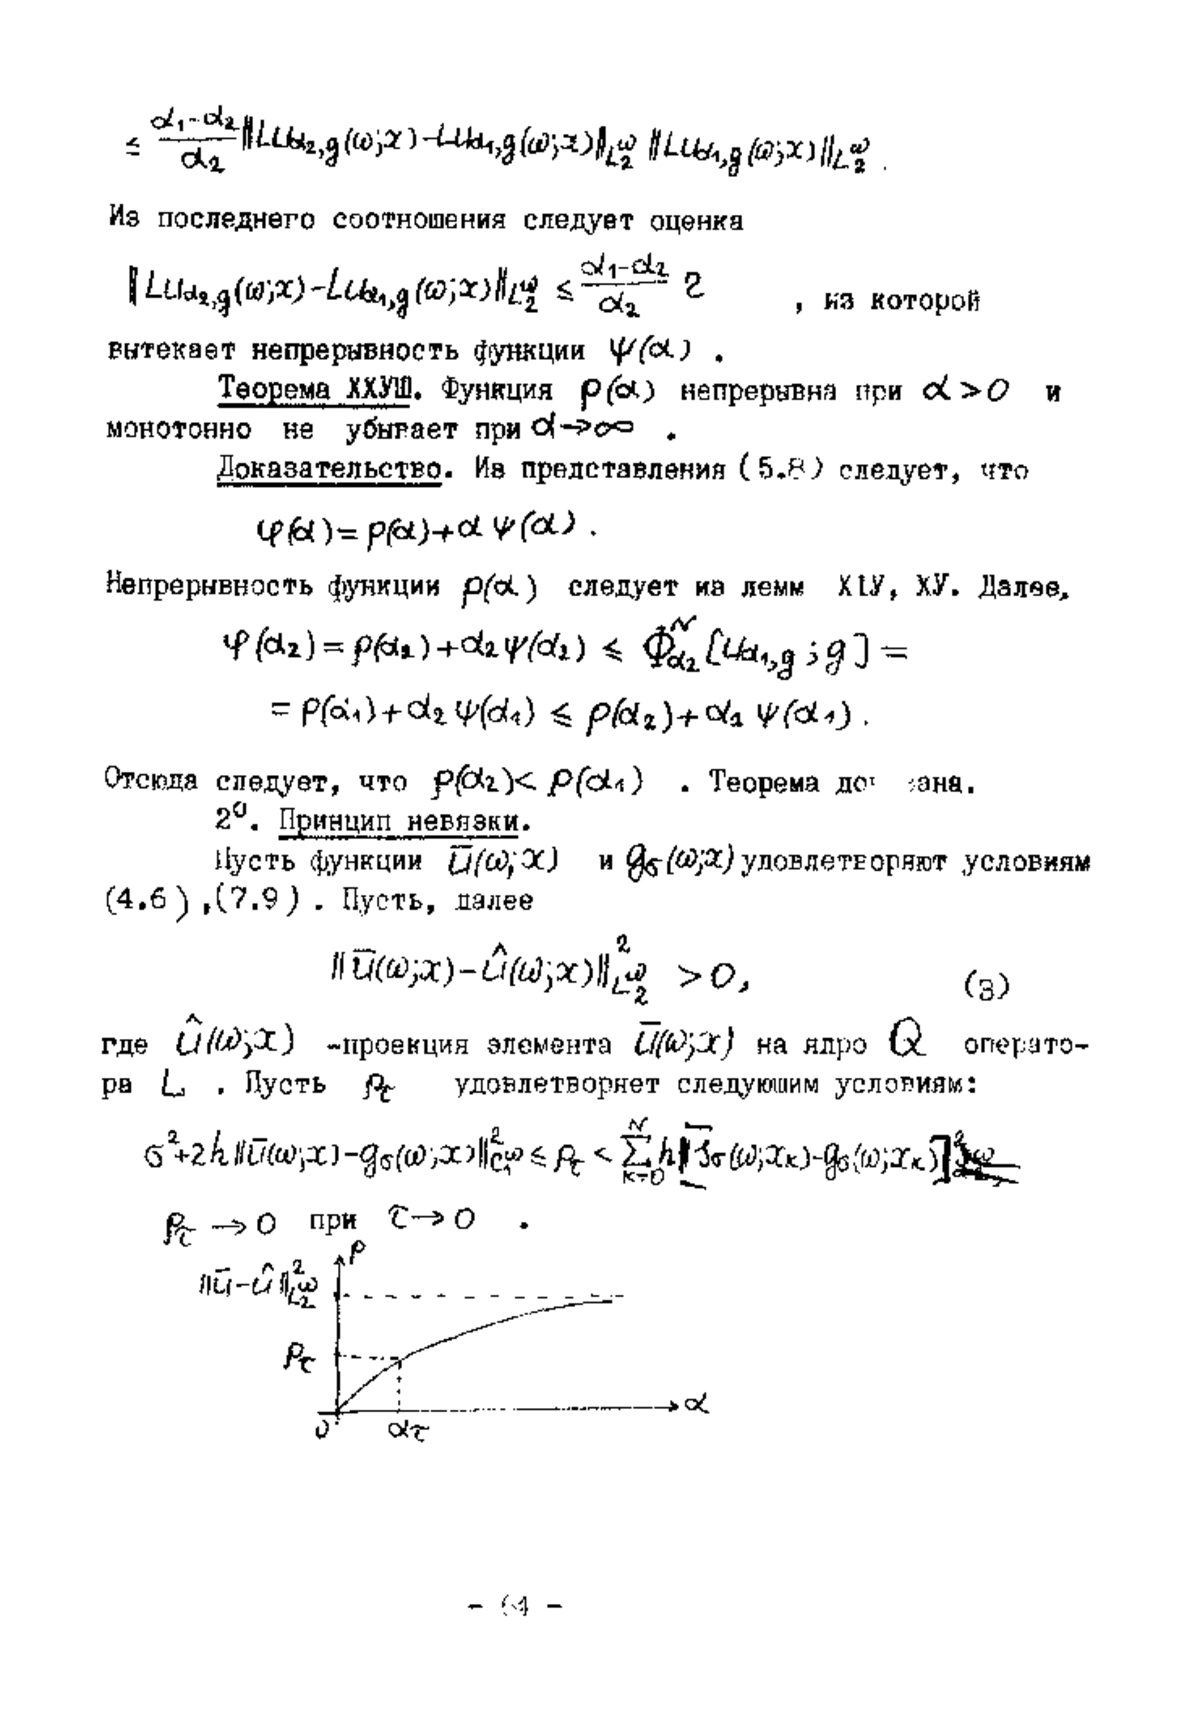 ≤ (α₁-α₂)/α₂ ‖Lu_{α₂,g}(ω;x)-Lu_{α₁,g}(ω;x)‖_{L₂^ω} ‖Lu_{α₁,g}(ω;x)‖_{L₂^ω} .
Из последнего соотношения следует оценка
‖Lu_{α₂,g}(ω;x)-Lu_{α₁,g}(ω;x)‖_{L₂^ω} ≤ (α₁-α₂)/α₂ τ , из которой
вытекает непрерывность функции ψ(α) .
Теорема ХХУШ. Функция ρ(α) непрерывна при α>0 и
монотонно не убывает при α→∞ .
Доказательство. Из представления (5.8) следует, что
φ(α)=ρ(α)+αψ(α).
Непрерывность функции ρ(α) следует из лемм ХIУ, ХУ. Далее,
φ(α₂)=ρ(α₂)+α₂ψ(α₂) ≤ Φ^N_{α₂}[u_{α₁,g};g]=
=ρ(α₁)+α₂ψ(α₁) ≤ ρ(α₂)+α₂ψ(α₁).
Отсюда следует, что ρ(α₂)<ρ(α₁) . Теорема до ана.
2⁰. Принцип невязки.
Пусть функции ū(ω;x) и g_σ(ω;x) удовлетворяют условиям
(4.6),(7.9). Пусть, далее
‖ū(ω;x)-û(ω;x)‖²_{L₂^ω} >0, (3)
где û(ω;x) -проекция элемента ū(ω;x) на ядро Q операто-
ра L . Пусть ρ_τ удовлетворяет следующим условиям:
σ²+2h‖ū(ω;x)-g_σ(ω;x)‖² ≤ ρ_τ < ∑_{к=0}^N h [ _σ(ω;x_к)-g_σ(ω;x_к)]²
ρ_τ →0 при τ→0 .
ρ
‖ū-û‖²_{L₂^ω}
ρ_τ
α
0 α_τ
- 64 -